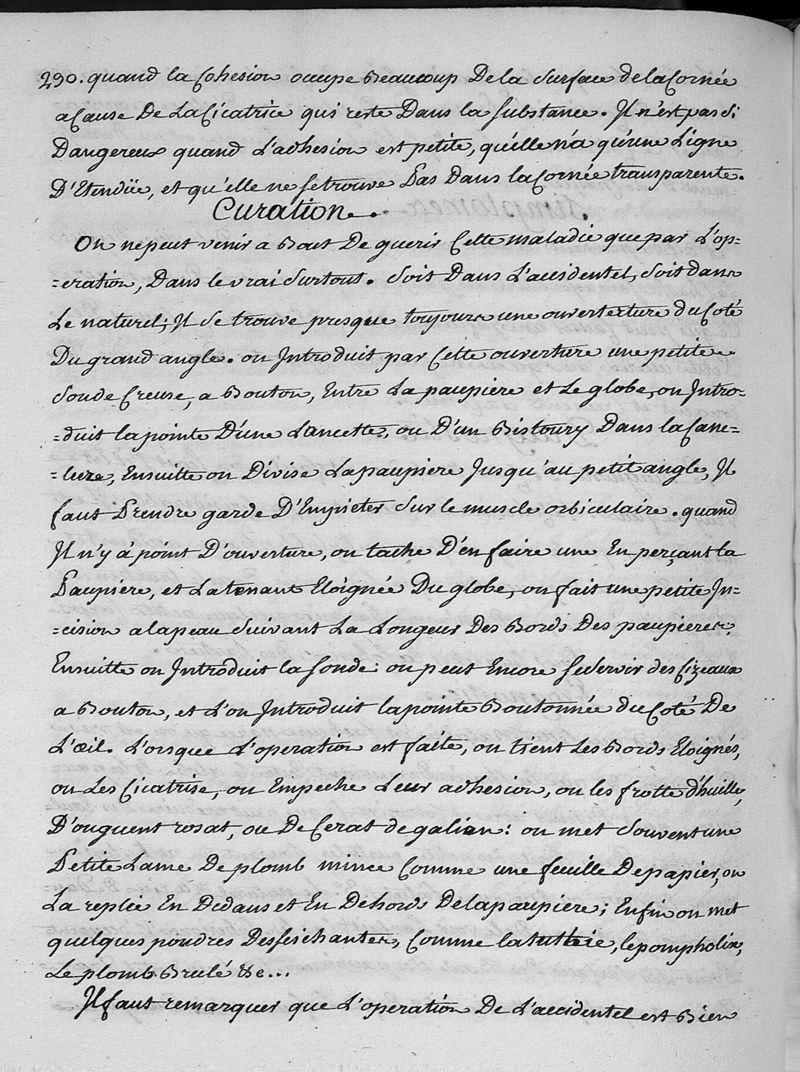 290. quand la Cohesion occupe Beaucoup De la Surface de la Cornée
a Cause De La Cicatrice qui reste Dans la Substance. Il n'est pas Si
Dangereux quand L'adhesion est petite, qu'elle n'a qu'une Ligne
D'Etendüe, et qu'elle ne se trouve Pas Dans la Cornée transparente.
Curation.
On ne peut venir a Bout De guerir Cette maladie que par L'op-
=eration, Dans le vrai Surtout. Soit Dans L'accidentel, Soit dans
Le naturel; Il Se trouve presque toujours une ouverterture du Coté
Du grand angle. on Introduit par Cette ouverture une petite
Sonde Creuse, a Bouton, Entre La paupiere et Le globe, on Intro-
=duit la pointe D'une Lancette, ou D'un Bistoury Dans la Cane-
=lure, Ensuitte on Divise La paupiere Jusqu'au petit angle, Il
faut Prendre garde D'Empieter Sur le muscle orbiculaire. quand
Il n'y á point D'ouverture, on tache D'en faire une En perçant la
Paupiere, et La tenant Eloignée Du globe, on fait une petite In-
=cision a la peau Suivant La Longeur Des Bords Des paupieres,
Ensuitte on Introduit la Sonde: on peut Encore Se Servoir des Cizeaux
a Bouton, et L'on Introduit la pointe Boutonnée du Coté De
L'œil. Lorsque L'operation est faite, on tient Les Bords Eloignés,
on Les Cicatrise, on Empeche Leur adhesion, on les frotte d'huille,
D'onguent rosat, ou De Cerat de galien: on met Souvent une
Petite Lame De plomb mince Comme une feuille De papier, on
La replie En Dedans et En Dehors De la paupiere; Enfin on met
quelques poudres Dessechantes, Comme la tuttie, le pompholix,
Le plomb Brulé &c...
Il faut remarquer que L'operation De L'accidentel est Bien